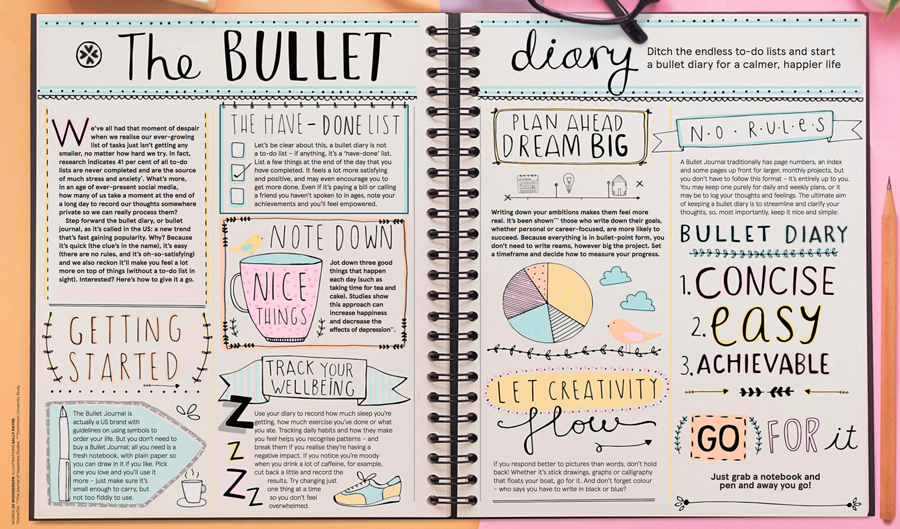 The BULLET
diary
Ditch the endless to-do lists and start
a bullet diary for a calmer, happier life
We've all had that moment of despair
when we realise our ever-growing
list of tasks just isn't getting any
smaller, no matter how hard we try. In fact,
research indicates 41 per cent of all to-do
lists are never completed and are the source
of much stress and anxiety*. What's more,
in an age of ever-present social media,
how many of us take a moment at the end of
a long day to record our thoughts somewhere
private so we can really process them?
Step forward the bullet diary, or bullet
journal, as it's called in the US: a new trend
that's fast gaining popularity. Why? Because
it's quick (the clue's in the name), it's easy
(there are no rules, and it's oh-so-satisfying)
and we also reckon it'll make you feel a lot
more on top of things (without a to-do list in
sight). Interested? Here's how to give it a go.
GETTING
STARTED
The Bullet Journal is
actually a US brand with
guidelines on using symbols to
order your life. But you don't need to
buy a Bullet Journal; all you need is a
fresh notebook, with plain paper so
you can draw in it if you like. Pick
one you love and you'll use it
more – just make sure it's
small enough to carry, but
not too fiddly to use.
THE HAVE-DONE LIST
Let's be clear about this, a bullet diary is not
a to-do list – if anything, it's a 'have-done' list.
List a few things at the end of the day that you
have completed. It feels a lot more satisfying
and positive, and may even encourage you to
get more done. Even if it's paying a bill or calling
a friend you haven't spoken to in ages, note your
achievements and you'll feel empowered.
NOTE DOWN
NICE
THINGS
Jot down three good
things that happen
each day (such as
taking time for tea and
cake). Studies show
this approach can
increase happiness
and decrease the
effects of depression**.
TRACK YOUR
WELLBEING
Z
Z
Z
Z
Use your diary to record how much sleep you're
getting, how much exercise you've done or what
you ate. Tracking daily habits and how they make
you feel helps you recognise patterns – and
break them if you realise they're having a
negative impact. If you notice you're moody
when you drink a lot of caffeine, for example,
cut back a little and record the
results. Try changing just
one thing at a time
so you don't feel
overwhelmed.
PLAN AHEAD
DREAM BIG
Writing down your ambitions makes them feel more
real. It's been shown*** those who write down their goals,
whether personal or career-focused, are more likely to
succeed. Because everything is in bullet-point form, you
don't need to write reams, however big the project. Set
a timeframe and decide how to measure your progress.
LET CREATIVITY
flow
If you respond better to pictures than words, don't hold
back! Whether it's stick drawings, graphs or calligraphy
that floats your boat, go for it. And don't forget colour
– who says you have to write in black or blue?
NO RULES
A Bullet Journal traditionally has page numbers, an index
and some pages up front for larger, monthly projects, but
you don't have to follow this format – it's entirely up to you.
You may keep one purely for daily and weekly plans, or it
may be to log your thoughts and feelings. The ultimate aim
of keeping a bullet diary is to streamline and clarify your
thoughts, so, most importantly, keep it nice and simple:
BULLET DIARY
1. CONCISE
2. easy
3. ACHIEVABLE
GO FOR it
Just grab a notebook and
pen and away you go!